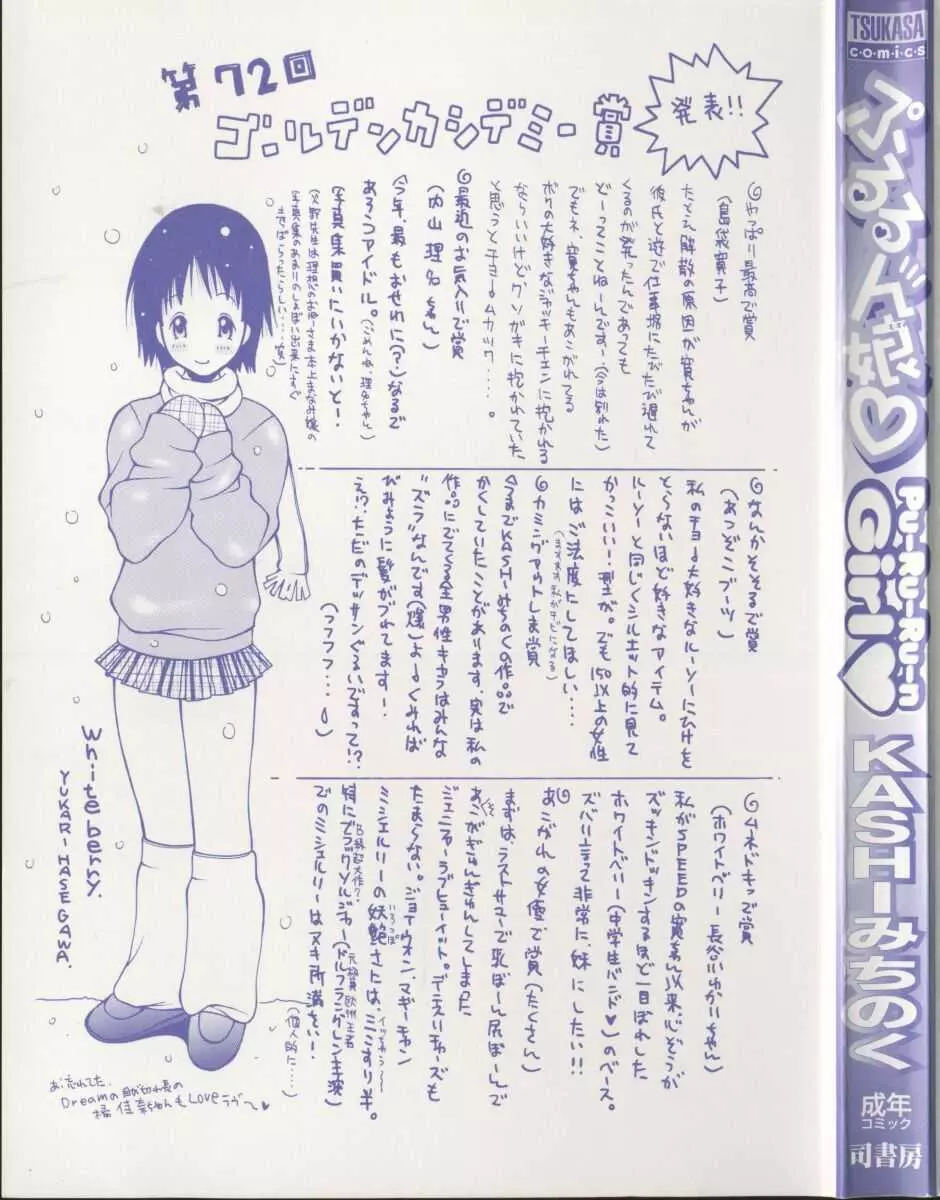 第72回
ゴールデンカシデミー賞
発表!!
◎やっぱり最高で賞
(島袋寛子)
たとえ解散の原因が寛ちゃんが
彼氏と遊で仕事場にたびたび遅れて
くるのが発ったんであっても
どーってことねーんです…(今は別れた)
でもネ、寛ちゃんもあこがれてる
ボクの大好きなジャッキーチェンに抱かれる
ならいいけど、クソガキに抱かれていた
と思うとチョームカック....。
◎最近のお気入りで賞
(内山理名ちゃん)
今年、最もおせわに(?)なるで
あろうアイドル。(ごめんね、理名ちゃん)
写真集買いたいかないと!
◎なんかそそるで賞
(あつぞこブーツ)
私のチョー大好きなルーソーにひけを
とらないほど好きなアイテム。
ルーソーと同じくシルエット的に見て
かっこいい!型が。でも150以上の女性
にはご法度にしてほしい....
◎カミングアウトしま賞
今までKASHIみちのくの作品で
かくしていたことがあります。実は私の
作品にでてくる全男性キャラはみんな
"ズラ"なんです(爆)よーくみれば
びみょうに髪がづれてます!
え!?ただのデッサンぐるいですって!?
(フフフフ...)
◎ムネドキッで賞
(ホワイトベリー 長谷川ゆかりちゃん)
私がSPEEDの寛ちゃん以来、心ぞうが
ズッキンドッキンするほど一目ぼれした
ホワイトベリー(中学生バンド♥)のベース。
ズバリ言って非常に、妹にしたい!!
◎あこがれの女優で賞(たくさん)
まずは、ラストサマーで乳ぼーん尻ぼーんで
あごがぎゅんぎゅんしてしまった
ジェニファーラブヒューイット。デニスリチャーズも
たまらない。ジョイウォン、マギーチャン
ミシェルリーの妖艶さたは、ミミずり半。
特にブラックソルジャー(ドルフラングレン主演)
でのミシェルリーはヌキ所満さい!
(個人的に....)
Whiteberry.
YUKARI・HASEGAWA.
お忘れてた、
Dreamの
橘佳奈ちゃんもLoveラヴ〜♥
TSUKASA
comics
ぷるるん娘♡
PU-RU-RU-n
Girl♡
KASHIみちのく
成年
コミック
司書房